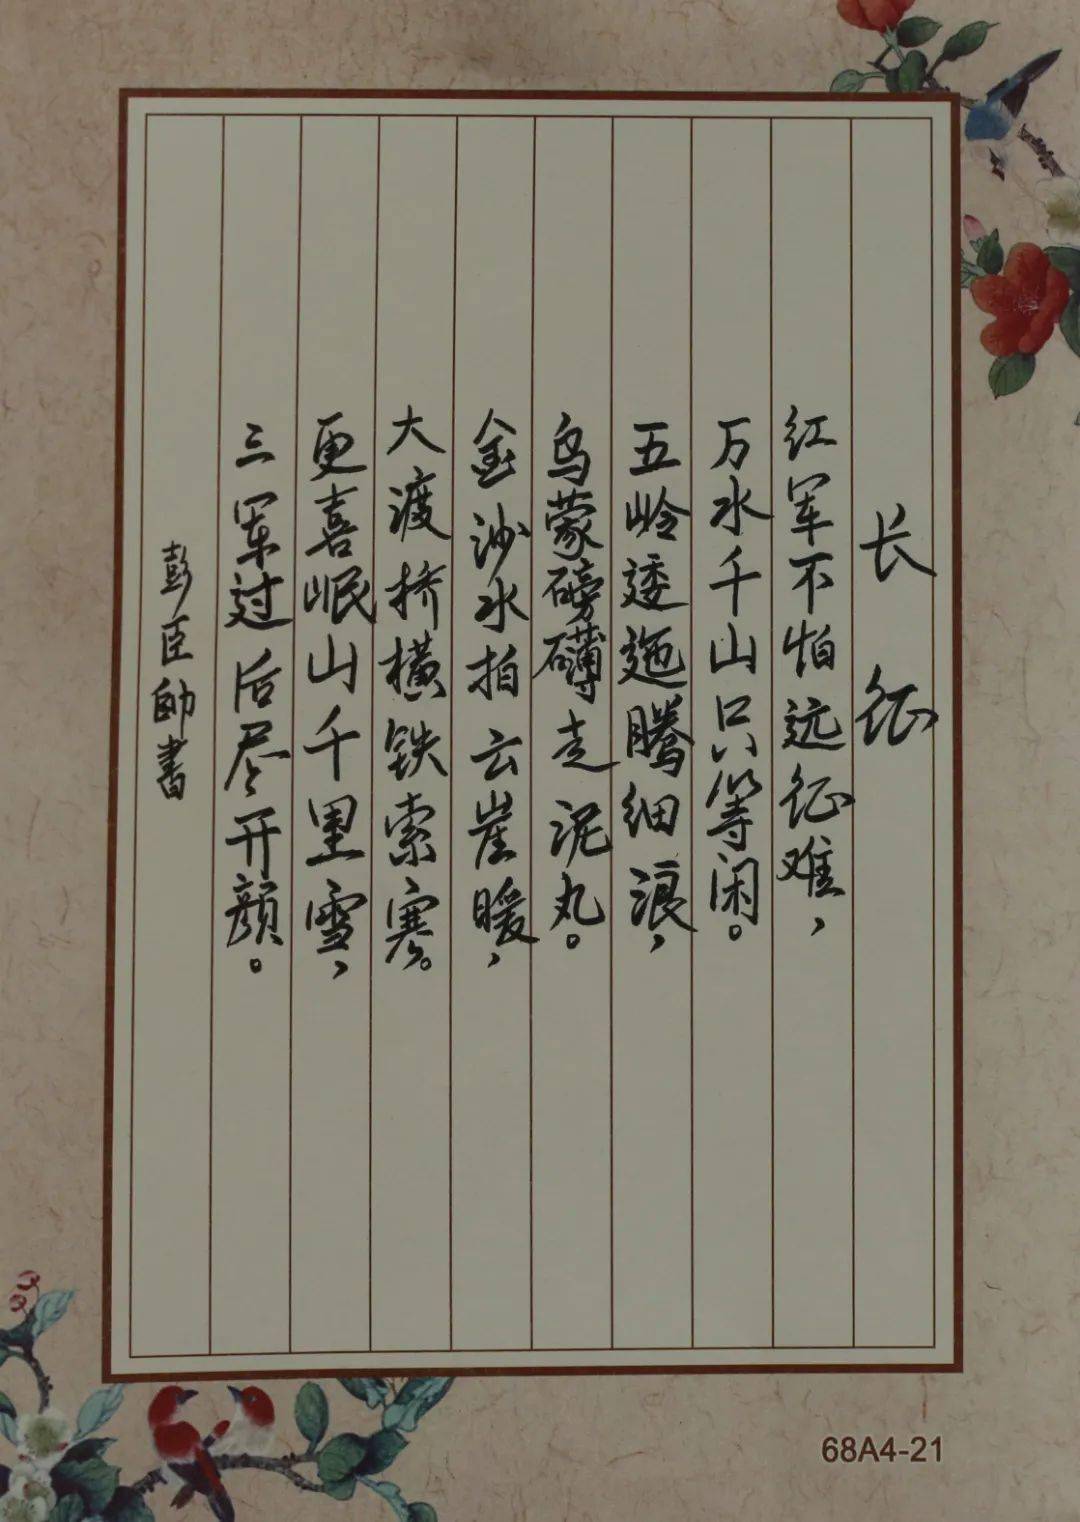 长征
红军不怕远征难，
万水千山只等闲。
五岭逶迤腾细浪，
乌蒙磅礴走泥丸。
金沙水拍云崖暖，
大渡桥横铁索寒。
更喜岷山千里雪，
三军过后尽开颜。
彭臣帥書
68A4-21